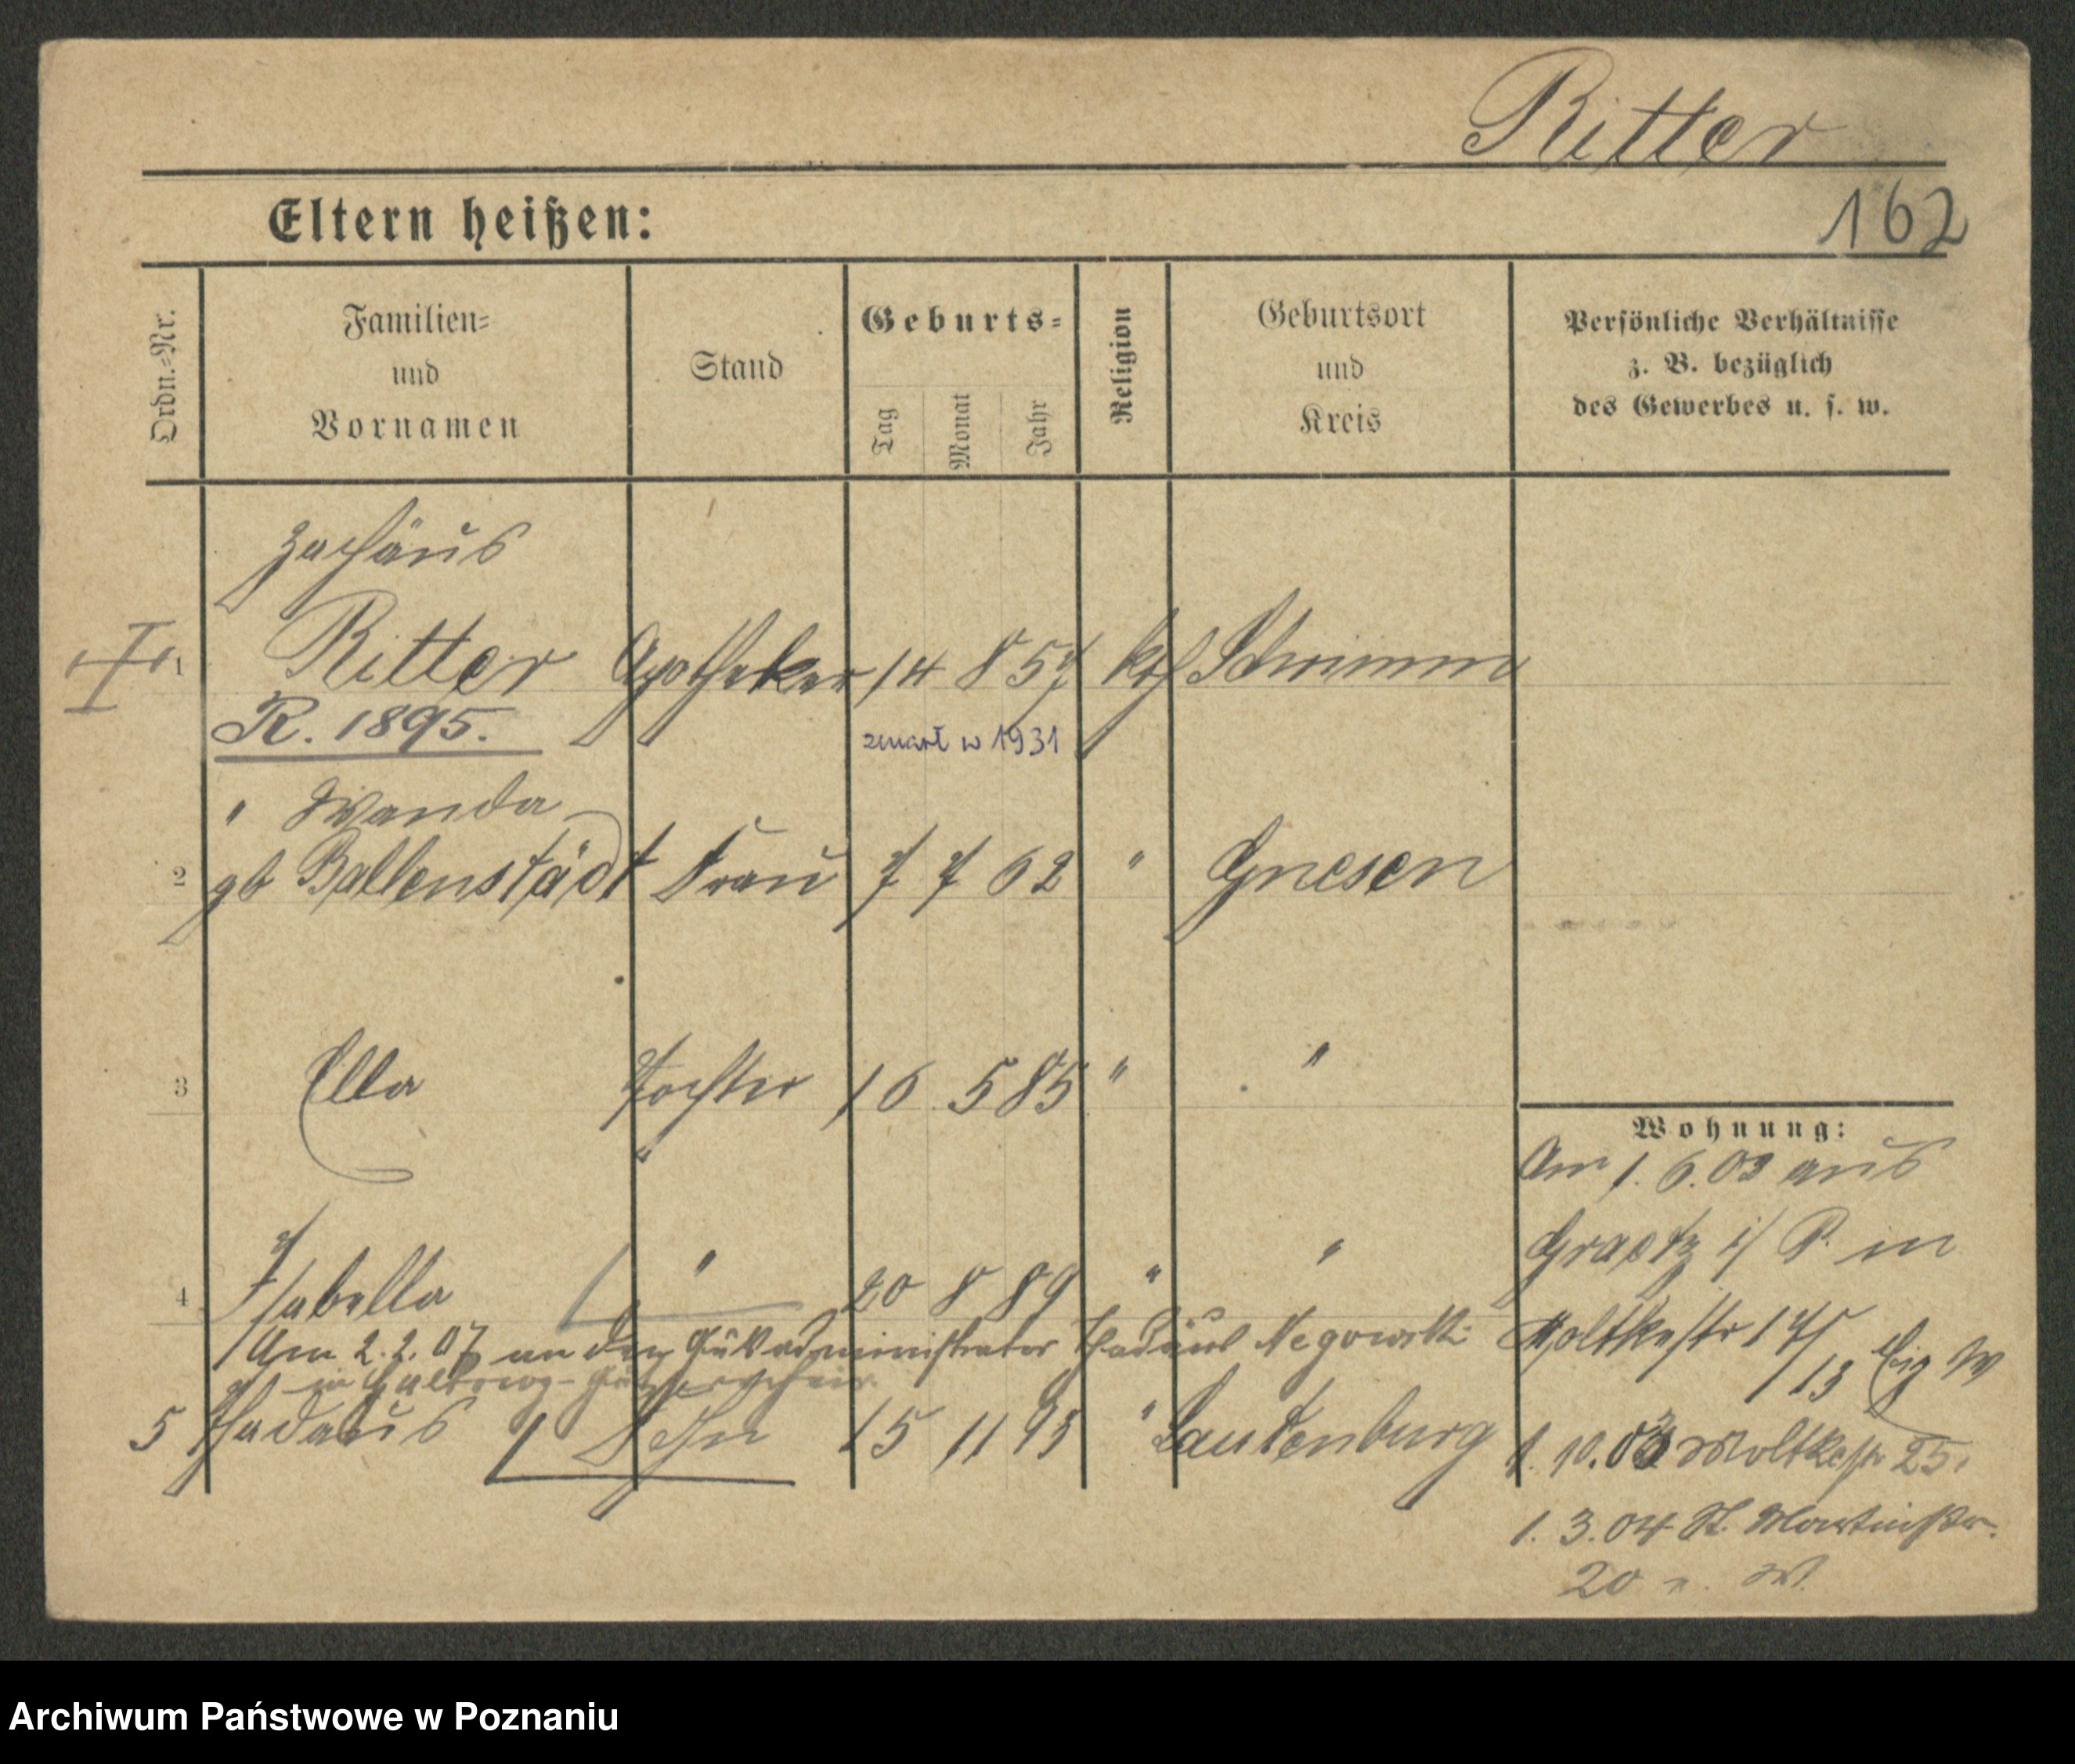 Ritter
162
Eltern heißen:
Ordn.=Nr.
Familien=
und
Vornamen
Stand
Geburts=
Tag
Monat
Jahr
Religion
Geburtsort
und
Kreis
Persönliche Verhältnisse
z. B. bezüglich
des Gewerbes u. s. w.
Zachäus
1 Ritter Apotheker 14 8 57 kth Schrimm
R. 1895.
zmarł w 1931
" Wanda
2 gb Ballenstädt Frau 7 7 62 " Gnesen
3 Ella Tochter 16 5 85 " "
4 Isabella " 20 8 89 " "
Am 2.2.07 an den Gutsadministrator Thadäus Negowski
in
5 Thadäus Sohn 15 11 95 " Lautenburg
Wohnung:
Am 1.6.03 aus
Graetz i/ P. in
Moltkestr 17/
13 Eig W
1.10.03 Moltkestr 25.
1.3.04 St. Martinstr.
20 W.
Archiwum Państwowe w Poznaniu